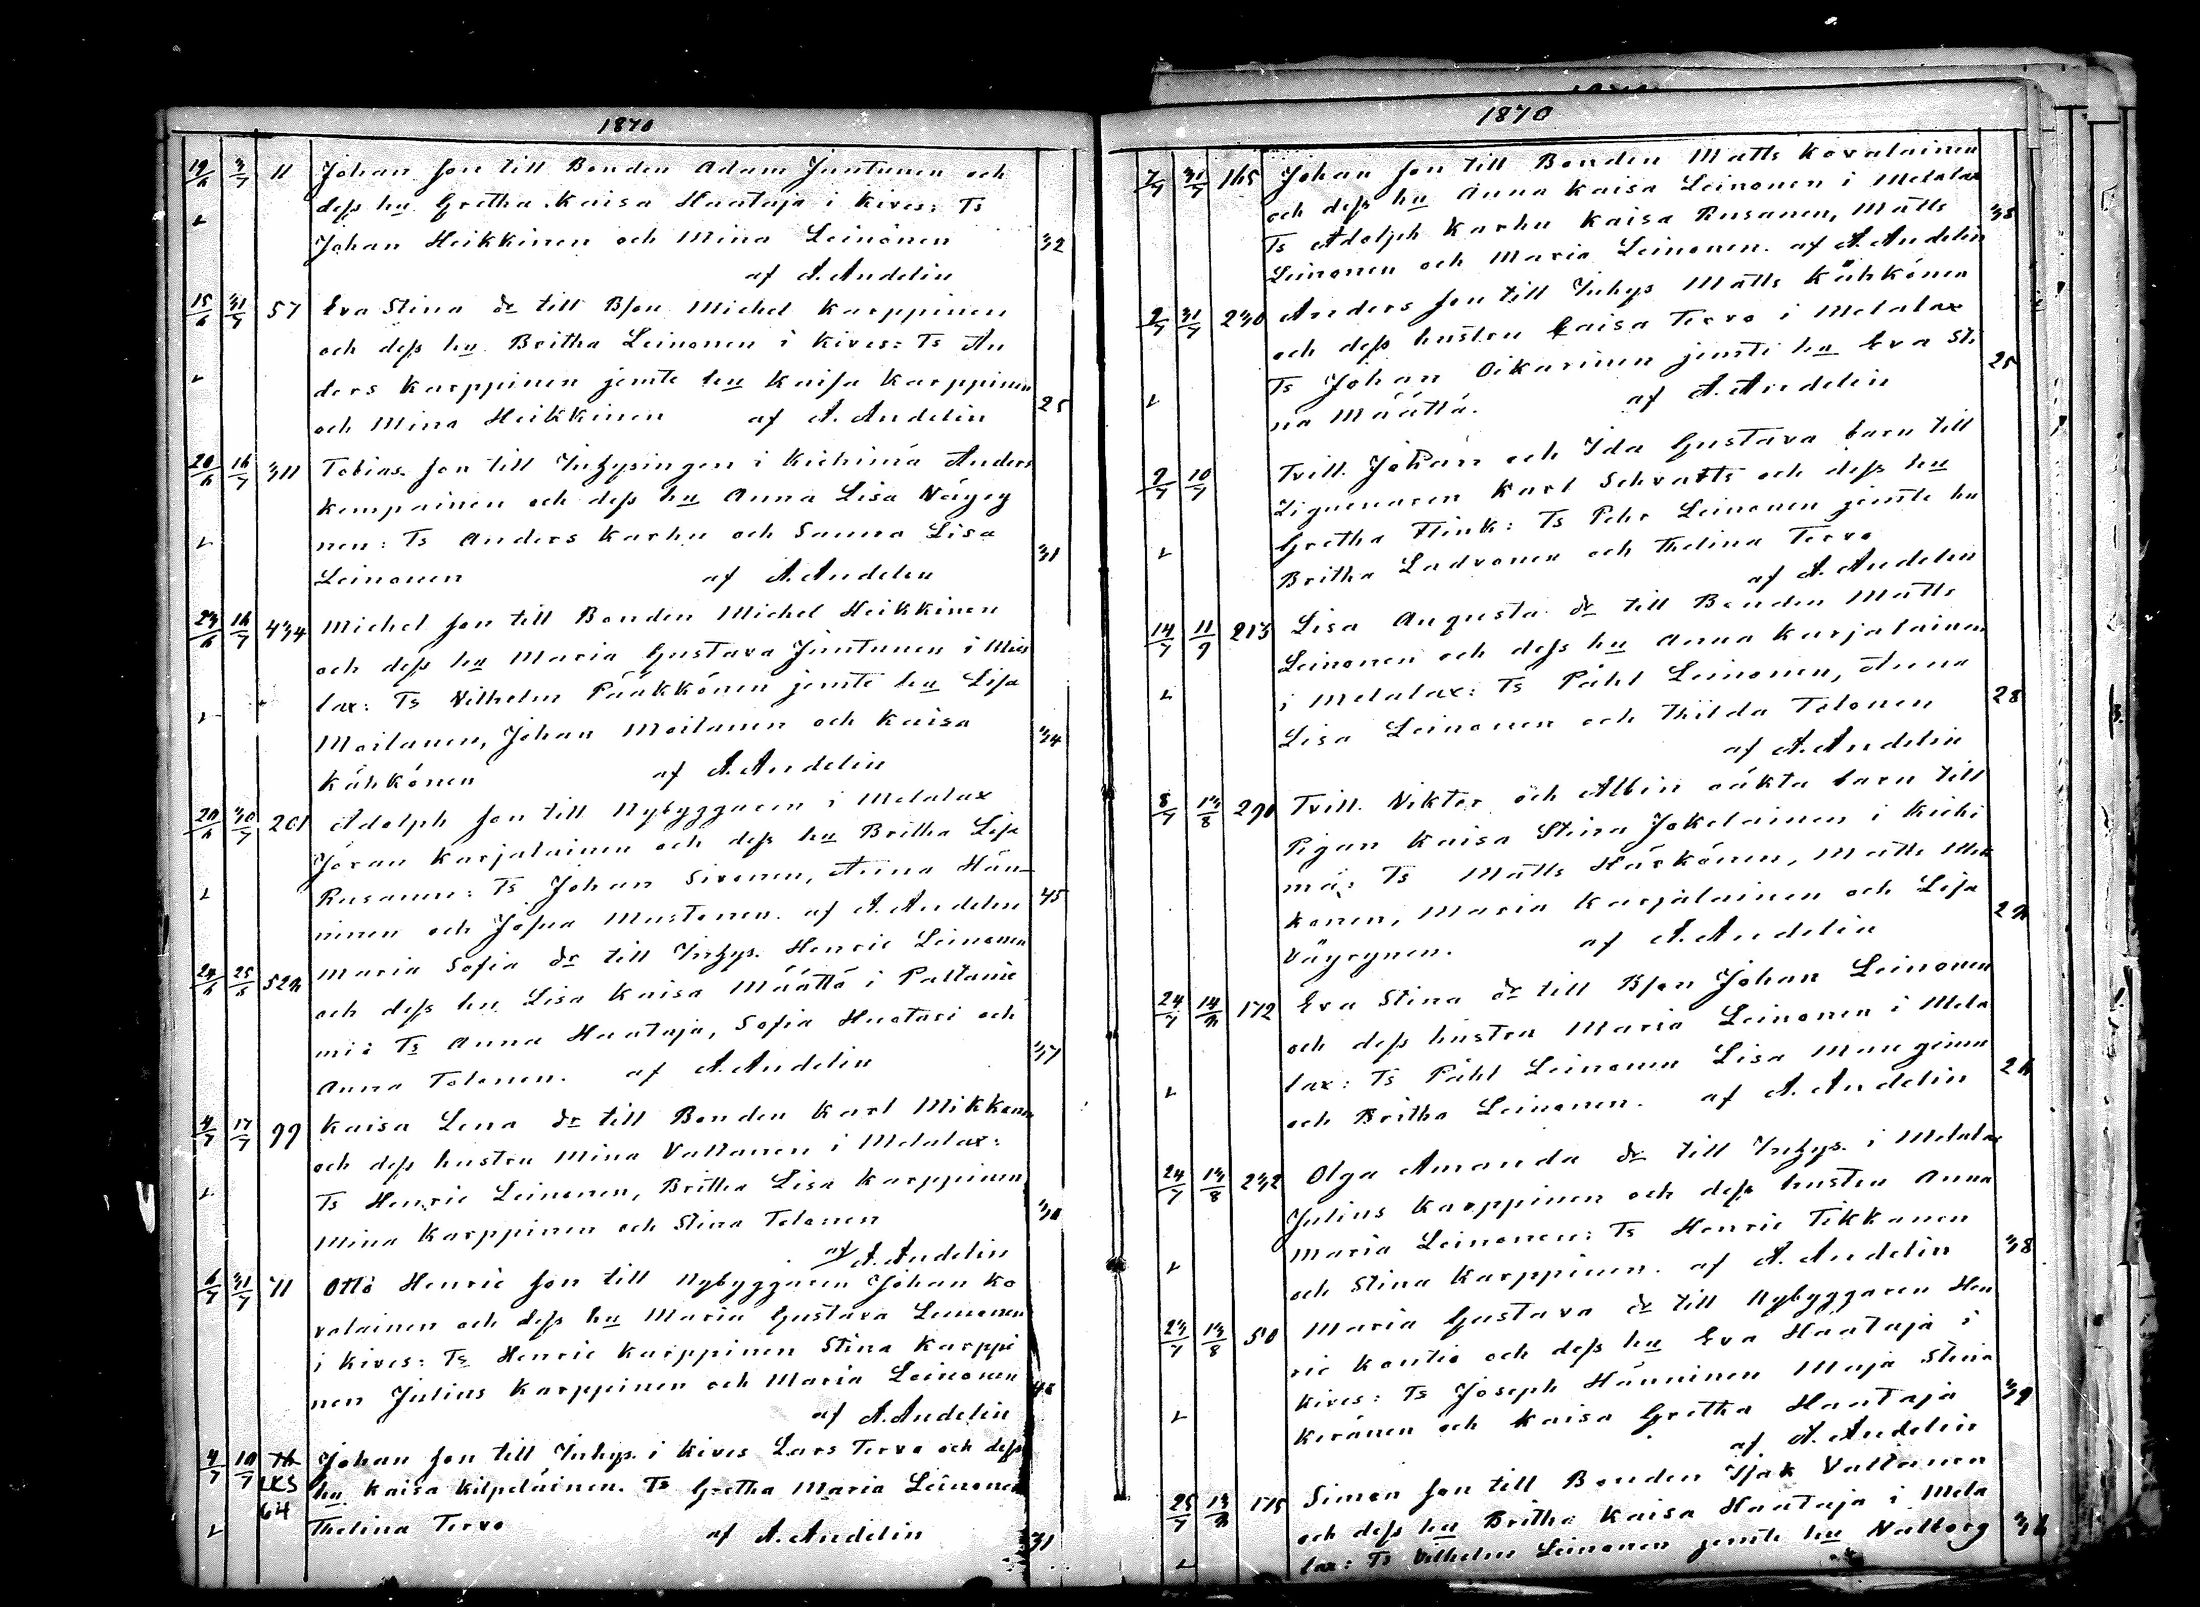 1870
19/6 3/7 11 Johan son till Bonden Adam Juntunen och
dess hu Gretha Kaisa Haataja i Kives: Ts
Johan Heikkinen och Mina Leinonen 32
af A. Andelin
15/6 31/7 57 Eva Stina dr till Bson Michel Karppinen
och dess hu Britha Leinonen i Kives: Ts An
ders Karppinen jemte hu Kaisa Karppinen
och Mina Heikkinen af A. Andelin 25
20/6 16/7 311 Tobias son till Inhysingen i Kiehimä Anders
Kemppainen och dess hu Anna Lisa Väyry
nen: Ts Anders Karhu och Sanna Lisa 31
Leinonen af A. Andelin
23/6 16/7 434 Michel son till Bonden Michel Heikkinen
och dess hu Maria Gustava Juntunen i Mies
lax: Ts Vilhelm Pääkkönen jemte hu Lisa
Moilanen, Johan Moilanen och Kaisa 34
Kähkönen af A. Andelin
20/6 30/7 201 Adolph son till Nybyggaren i Melalax
Jöran Karjalainen och dess hu Britha Lisa
Rusanen: Ts Johan Sirenen, Anna Hän- 45
ninen och Josua Mustonen. af A. Andelin
24/6 25/6 526 Maria Sofia dr till Inhys. Henric Leinonen
och dess hu Lisa Kaisa Määttä i Paltanie
mi: Ts Anna Haataja, Sofia Huotari och 37
Anna Tolonen. af A. Andelin
4/7 17/7 99 Kaisa Lena dr till Bonden Karl Mikkonen
och dess hustru Mina Valtanen i Melalax:
Ts Henric Leinonen, Britha Lisa Karppinen 30
Mina Karppinen och Stina Tolonen
af A. Andelin
6/7 31/7 71 Otto Henric son till Nybyggaren Johan Ko
valainen och dess hu Maria Gustava Leinonen
i Kives: Ts Henric Karppinen Stina Karppi
nen Julius Karppinen och Maria Leinonen
af A. Andelin
4/7 10/7 Johan son till Inhys. i Kives Lars Tervo och dess
LKS hu Kaisa Kilpeläinen. Ts Gretha Maria Leinonen
64 Thelina Tervo af A. Andelin 31
1870
7/7 31/7 165 Johan son till Bonden Matts Kovalainen
och dess hu Anna Kaisa Leinonen i Melalax
Ts Adolph Karhu Kaisa Rusanen, Matts 38
Leinonen och Maria Leinonen. af A. Andelin
2/7 31/7 230 Anders son till Inhys Matts Kähkönen
och dess hustru Caisa Tervo i Melalax
Ts Johan Oikarinen jemte hu Eva Sti 25
na Määttä. af A. Andelin
9/7 10/7 Tvill. Johan och Ida Gustava barn till
Zigenaren Karl Schvartz och dess hu
Gretha Flink: Ts Pehr Leinonen jemte hu
Britha Ladvonen och Thelina Tervo
af A. Andelin
14/7 11/9 213 Lisa Augusta dr till Bonden Matts
Leinonen och dess hu Anna Karjalainen
i Melalax: Ts Påhl Leinonen, Anna 28
Lisa Leinonen och Thilda Tolonen
af A. Andelin
8/7 13/8 290 Tvill. Viktor och Albin oäkta barn till
Pigan Kaisa Stina Jokelainen i Kiehi
mä: Ts Matts Härkönen, Matts
konen, Maria Karjalainen och Lisa 26
Väyrynen. af A. Andelin
24/7 14/8 172 Eva Stina dr till Bson Johan Leinonen
och dess hustru Maria Leinonen i Mela
lax: Ts Påhl Leinonen Lisa Manginen 26
och Britha Leinonen. af A. Andelin
24/7 13/8 232 Olga Amanda dr till Inhys. i Melalax
Julius Karppinen och dess hustru Anna
Maria Leinonen: Ts Henric Tikkanen 38
och Stina Karppinen. af A. Andelin
23/7 13/8 50 Maria Gustava dr till Nybyggaren Hen
ric Kontio och dess hu Eva Haataja i
Kives: Ts Joseph Hänninen Maja Stina 39
Keränen och Kaisa Gretha Haataja
af A. Andelin
25/7 13/8 175 Simon son till Bonden Isak Valtanen
och dess hu Britha Kaisa Haataja i Mela 36
lax: Ts Vilhelm Leinonen jemte hu Valborg